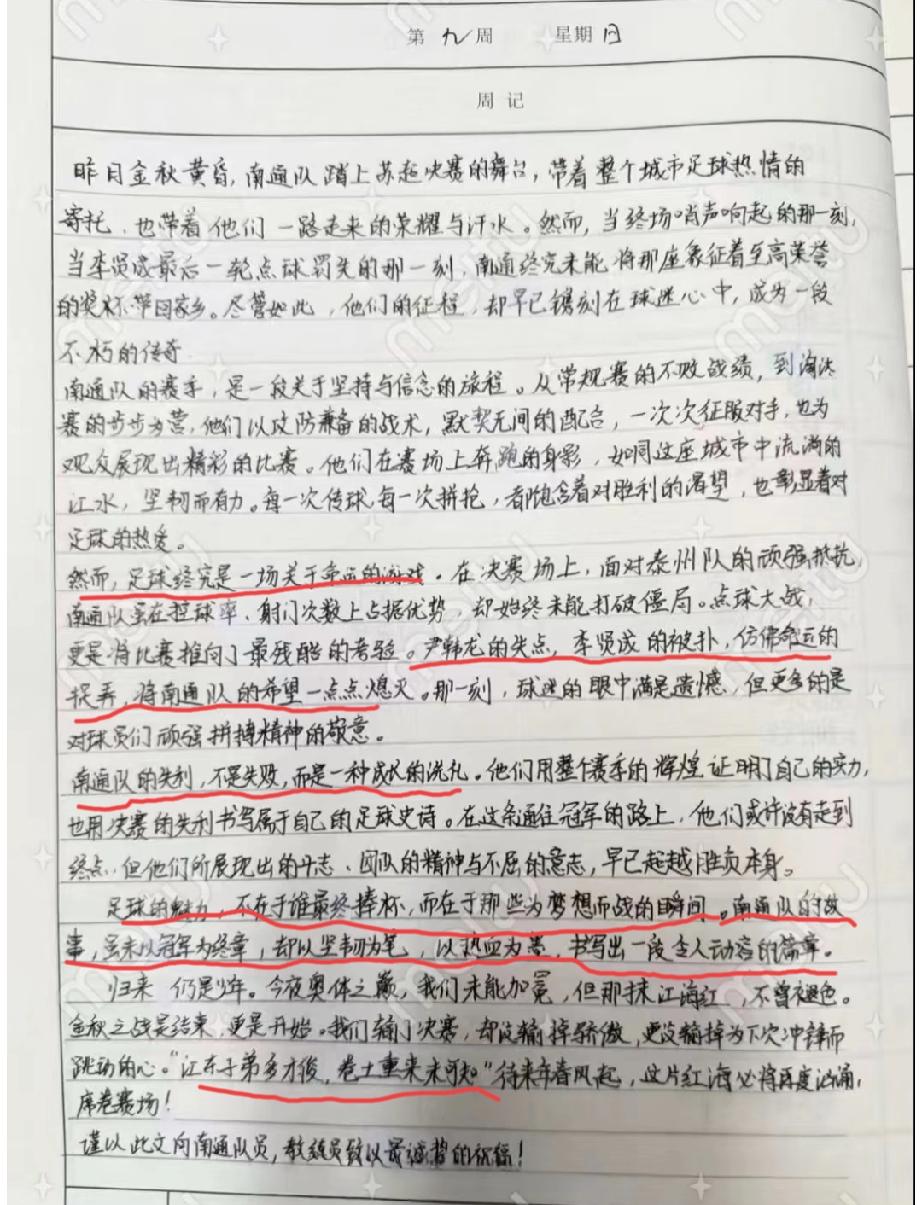 第九周 星期日
周记
昨日金秋黄昏,南通队踏上苏超决赛的舞台,带着整个城市足球热情的
寄托、也带着他们一路走来的荣耀与汗水。然而,当终场哨声响起的那一刻,
当李贤成最后一轮点球罚失的那一刻,南通终究未能将那座象征着至高荣誉
的奖杯带回家乡。尽管如此,他们的征程,却早已镌刻在球迷心中,成为一段
不朽的传奇
南通队的赛季,是一段关于坚持与信念的旅程。从常规赛的不败战绩,到淘汰
赛的步步为营,他们以攻防兼备的战术,默契无间的配合,一次次征服对手,也为
观众展现出精彩的比赛。他们在赛场上奔跑的身影,如同这座城市中流淌的
江水,坚韧而有力。每一次传球、每一次拼抢,都饱含着对胜利的渴望,也彰显着对
足球的热爱。
然而,足球终究是一场关于命运的游戏。在决赛场上,面对泰州队的顽强抵抗,
南通队虽在控球率、射门次数上占据优势,却始终未能打破僵局。点球大战,
更是将比赛推向了最残酷的考验。尹韩龙的失点,李贤成的被扑,仿佛命运的
捉弄,将南通队的希望一点点熄灭。那一刻,球迷的眼中满是遗憾,但更多的是
对球员们顽强拼搏精神的敬意。
南通队的失利,不是失败,而是一种成长的洗礼。他们用整个赛季的辉煌证明了自己的实力,
也用决赛的失利书写属于自己的足球史诗。在这条通往冠军的路上,他们或许没有走到
终点,但他们所展现出的斗志、团队的精神与不屈的意志,早已超越胜负本身。
足球的魅力,不在于谁最终捧杯,而在于那些为梦想而战的瞬间。南通队的故
事,虽未以冠军为终章,却以坚韧为笔,以热血为墨,书写出一段令人动容的篇章。
归来 仍是少年。今夜奥体之巅,我们未能加冕,但那抹江海红,不曾褪色。
金秋之战是结束,更是开始。我们输了决赛,却没输掉骄傲,更没输掉为下次冲锋而
跳动的心。“江东子弟多才俊,卷土重来未可知”待来年春风起,这片红海必将再度汹涌,
席卷赛场!
谨以此文向南通队员,教练员致以最诚挚的祝福!